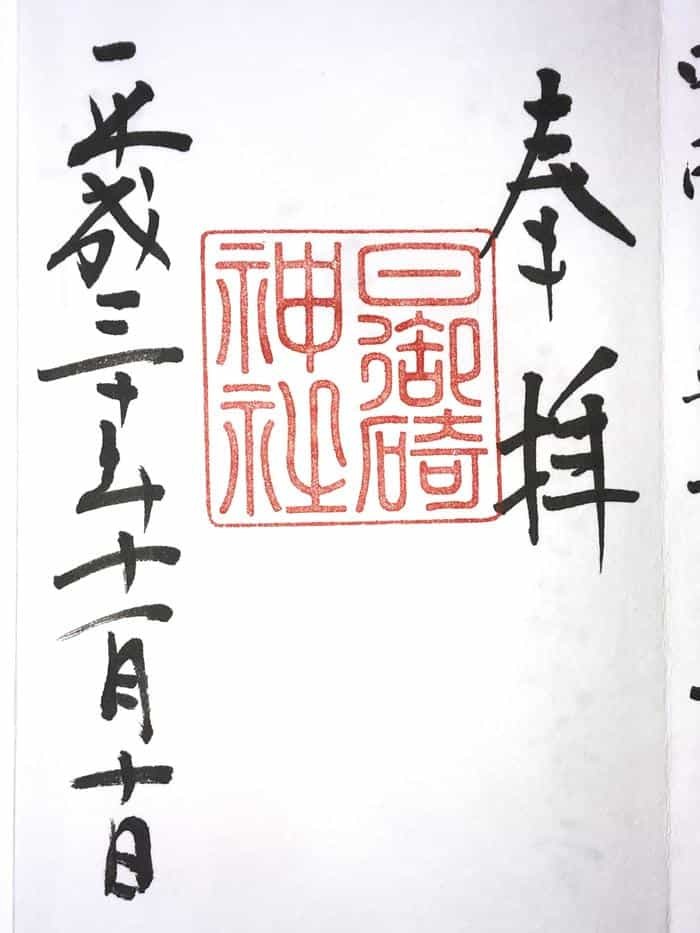 奉拝
日御碕
神社
平成三十年十一月十日